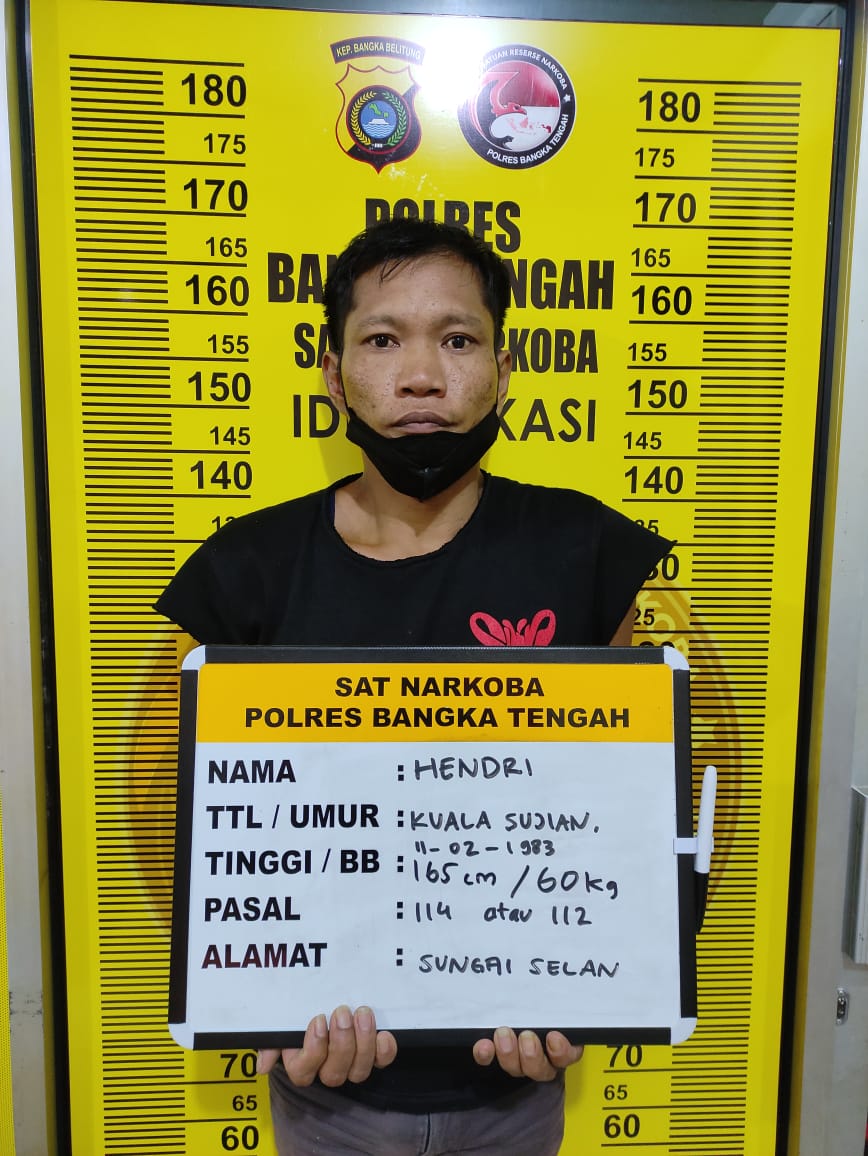 KEP. BANGKA BELITUNG
SATUAN RESERSE NARKOBA
POLRES BANGKA TENGAH
180
175
170
165
160
155
150
145
140
180
175
170
165
160
155
150
145
140
POLRES
BAN NGAH
SA KOBA
ID KASI
SAT NARKOBA
POLRES BANGKA TENGAH
NAMA : HENDRI
TTL / UMUR : KUALA SUJIAN,
11-02-1983
TINGGI / BB : 165 cm / 60 kg
PASAL : 114 atau 112
ALAMAT : SUNGAI SELAN
70
65
60
70
65
60